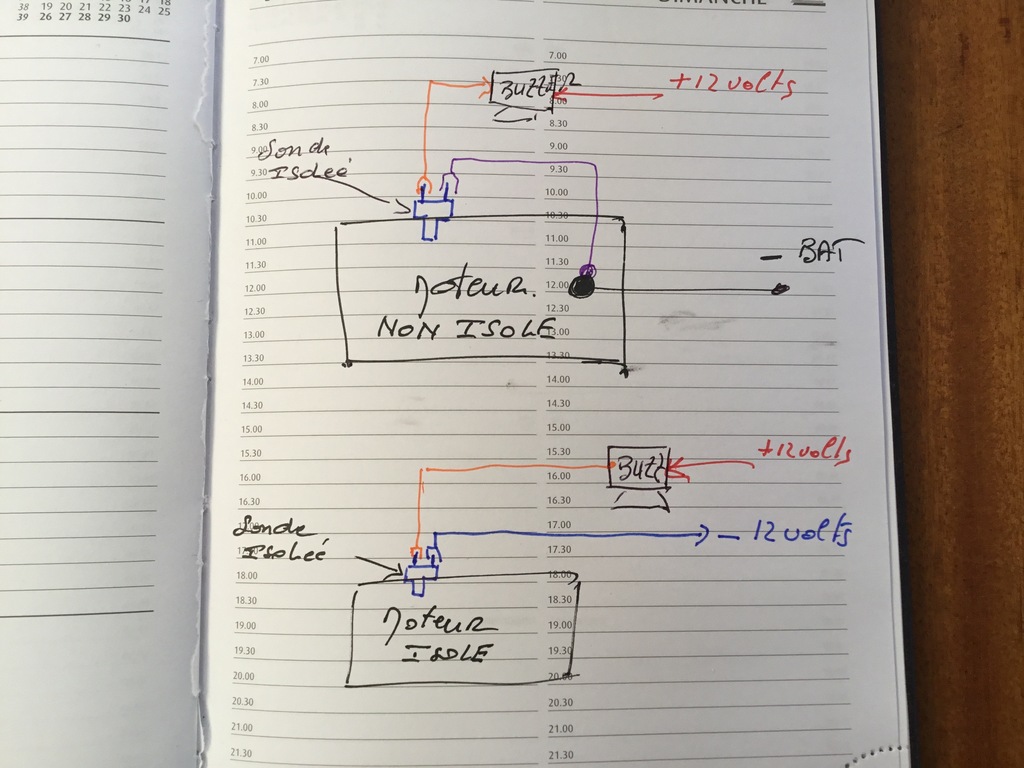 38 19 20 21 22 23 24 25
39 26 27 28 29 30
DIMANCHE
7.00 7.00
7.30 7.30
8.00 8.00
8.30 8.30
9.00 9.00
9.30 9.30
10.00 10.00
10.30 10.30
11.00 11.00
11.30 11.30
12.00 12.00
12.30 12.30
13.00 13.00
13.30 13.30
14.00 14.00
14.30 14.30
15.00 15.00
15.30 15.30
16.00 16.00
16.30 16.30
17.00
17.30
18.00 18.00
18.30 18.30
19.00 19.00
19.30 19.30
20.00 20.00
20.30 20.30
21.00 21.00
21.30 21.30
BUZZER
+12 volts
Sonde
ISoleé
- BAT
Moteur.
NON ISOLE
BUZZ
+12 volts
Sonde
ISoleé
- 12 volts
Moteur
ISOLE